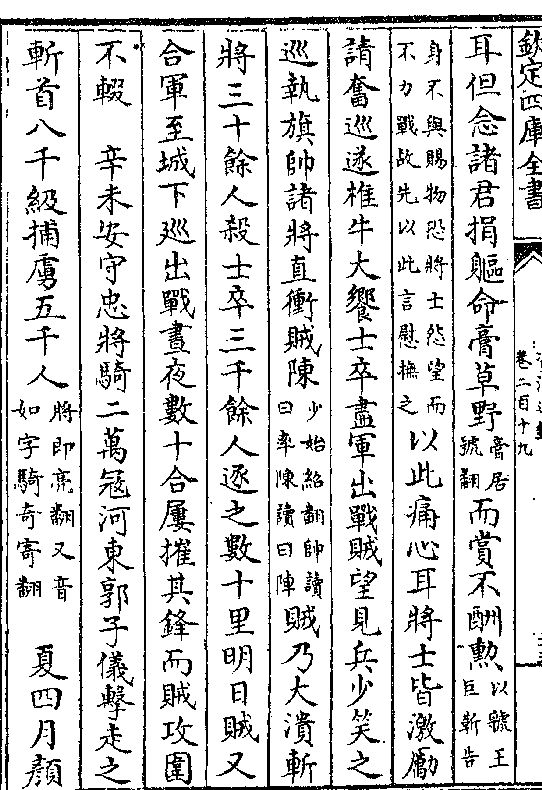 欽定四庫全書
卷二百十九
耳但念諸君捐軀命膏草野膏居號翻而賞不酬勲以虢王巨靳告
身不與賜物恐將士怨望而不力戰故先以此言慰撫之以此痛心耳將士皆激勵
請奮巡遂椎牛大饗士卒盡軍出戰賊望見兵少笑之
巡執旗帥諸將直衝賊陳少始紹翻帥讀曰率陳讀曰陣賊乃大潰斬
將三十餘人殺士卒三千餘人逐之數十里明日賊又
合軍至城下巡出戰晝夜數十合屢摧其鋒而賊攻圍
不輟　辛未安守忠將騎二萬冦河東郭子儀擊走之
斬首八千級捕虜五千人將即亮翻又音如字騎奇寄翻　夏四月顏